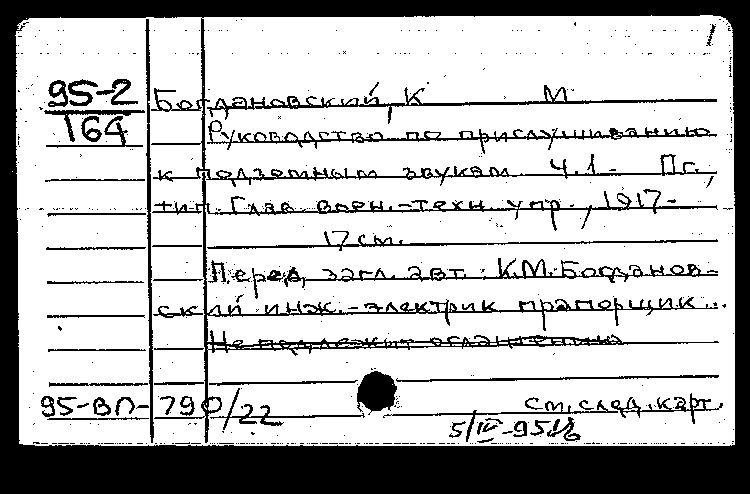 1
95-2
164
Богдановский, К М
Руководство по прислушиванию
к подземным звукам. Ч.1- Пг.,
тип. Глав. воен.-техн. упр., 1917-
17 см.
Перед. загл. авт.: К.М. Богданов-
ский инж.-электрик прапорщик..
Не подлежит оглашению
95-ВП-790/22
см. след. карт.
5/IV-95